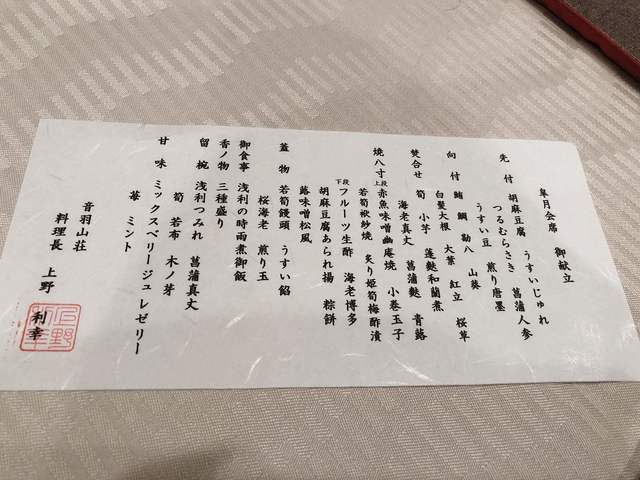 皐月会席　御献立
先付　胡麻豆腐　うすいじゅれ
つるむらさき　菖蒲人参
うすい豆　煎り唐墨
向付　鮪　鯛　勘八　山葵
白髪大根　大葉　紅立　桜草
焚合せ　筍　小芋　蓬麩和蘭煮
海老真丈　菖蒲麩　青蕗
焼八寸　上段　赤魚味噌幽庵焼　小巻玉子
若筍袱紗焼　炙り姫筍梅酢漬
下段　フルーツ生酢　海老博多
胡麻豆腐あられ揚　粽餅
蕗味噌松風
蓋物　若筍饅頭　うすい餡
桜海老　煎り玉
御食事　浅利の時雨煮御飯
香ノ物　三種盛り
留椀　浅利つみれ　菖蒲真丈
筍　若布　木ノ芽
甘味　ミックスベリージュレゼリー
苺　ミント
音羽山荘
料理長　上野　利幸